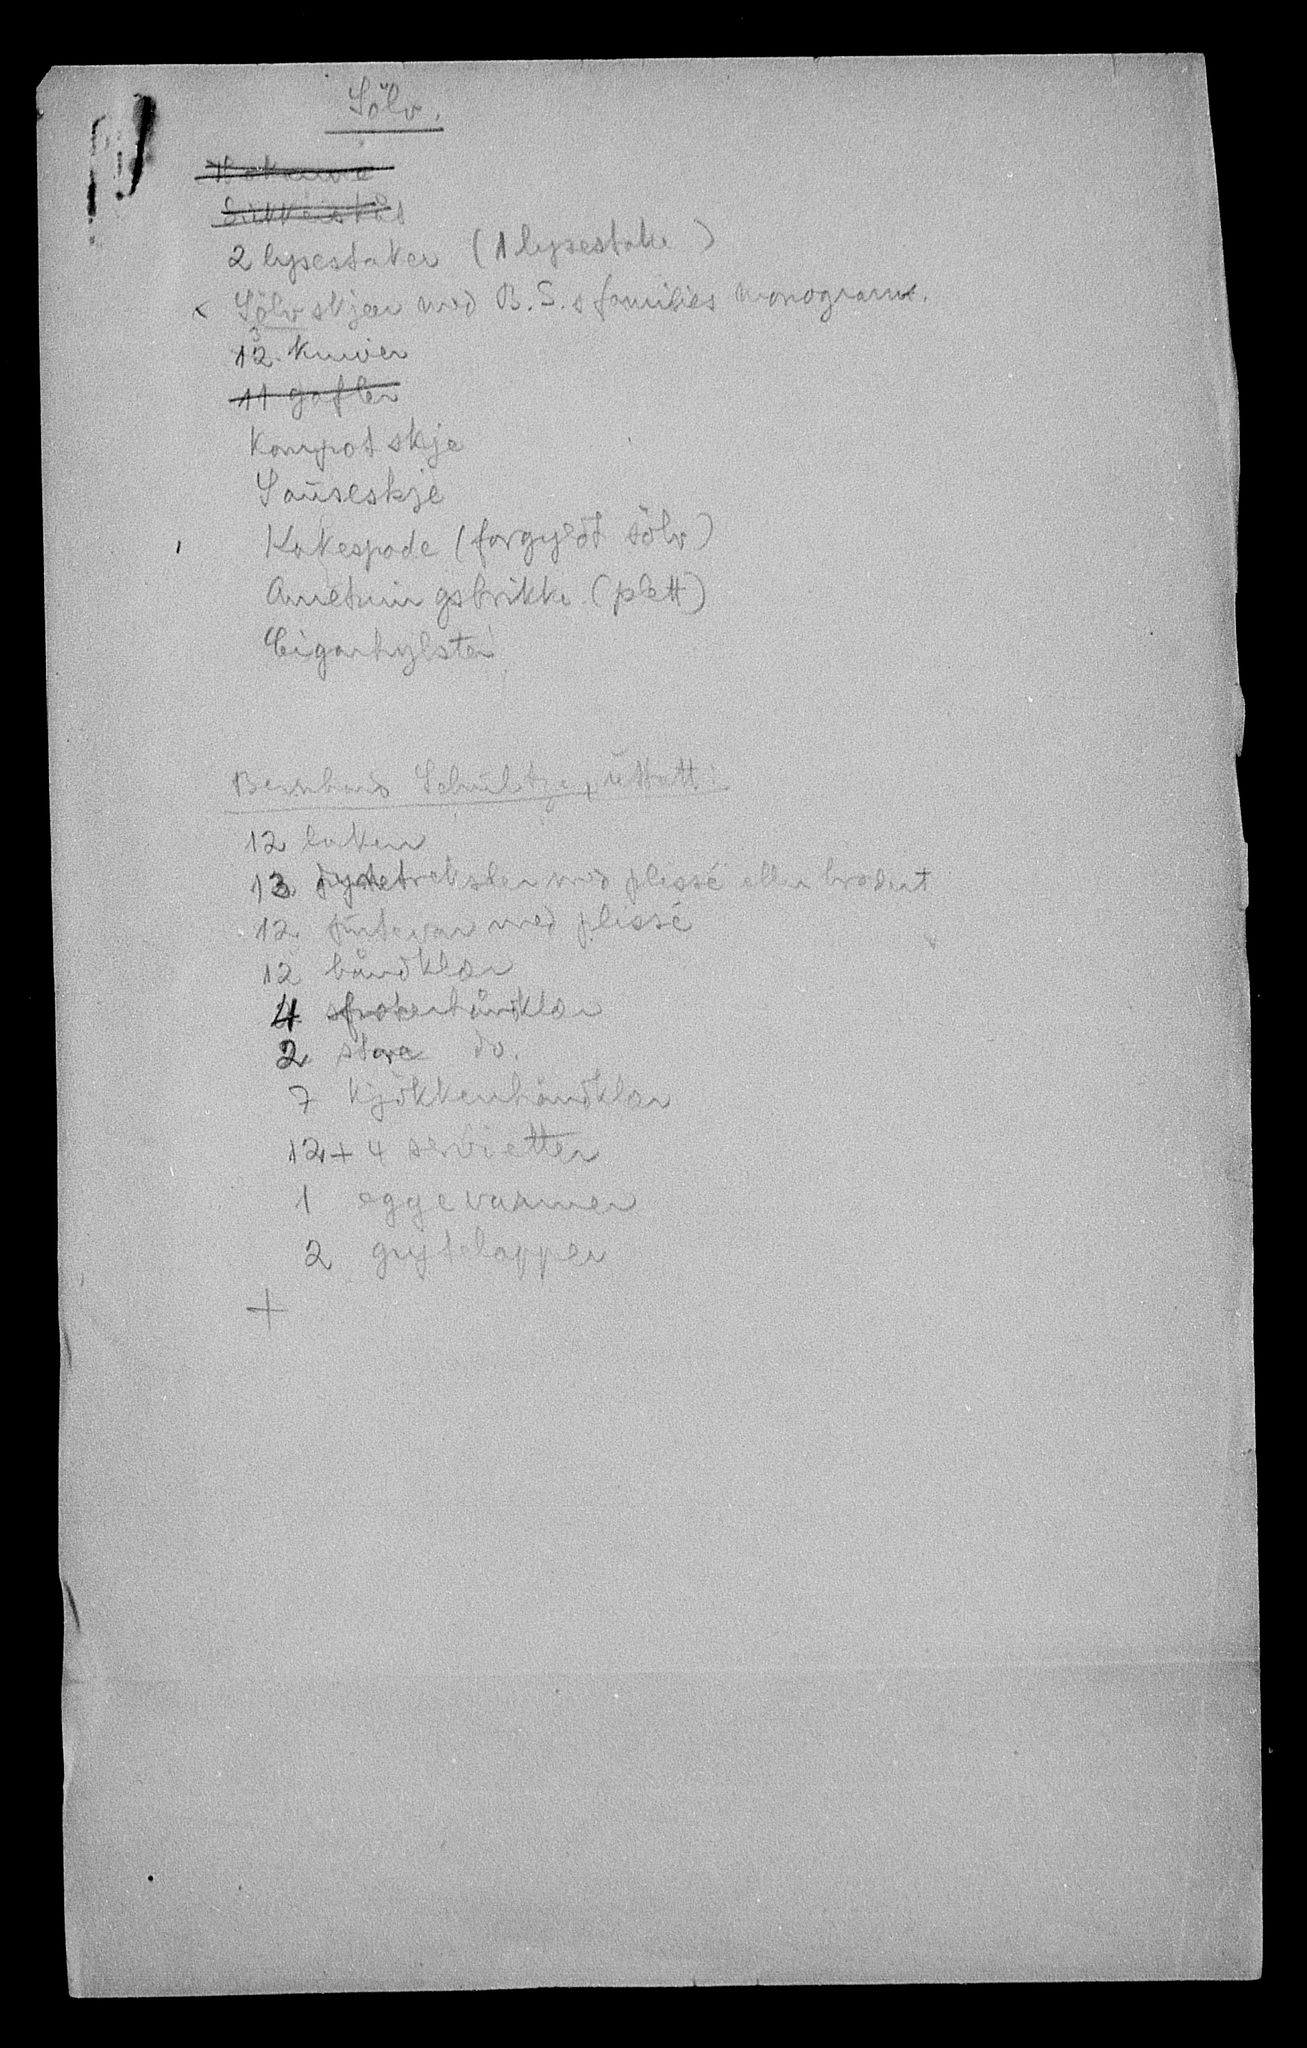 Sölv.
Kakeuuve
Sukkerskål
2 lysestaker (1 lysestake)
Sölvskjeer med B.S.s families monogram.
12 kniver
11 gafler
Kompotskje
Sauseskje
Kakespade (forgyldt sölv)
Anretningsbrikke (plett)
Cigarhylster
Bernhard Schultze, uttatt:
12 laken
13 dynetreksler med plissé eller brodert
12 putevar med plissé
12 håndklær
4 froterhåndklær
2 store do.
7 kjökkenhåndklær
12 + 4 servietter
1 eggevarmer
2 grytelapper
+